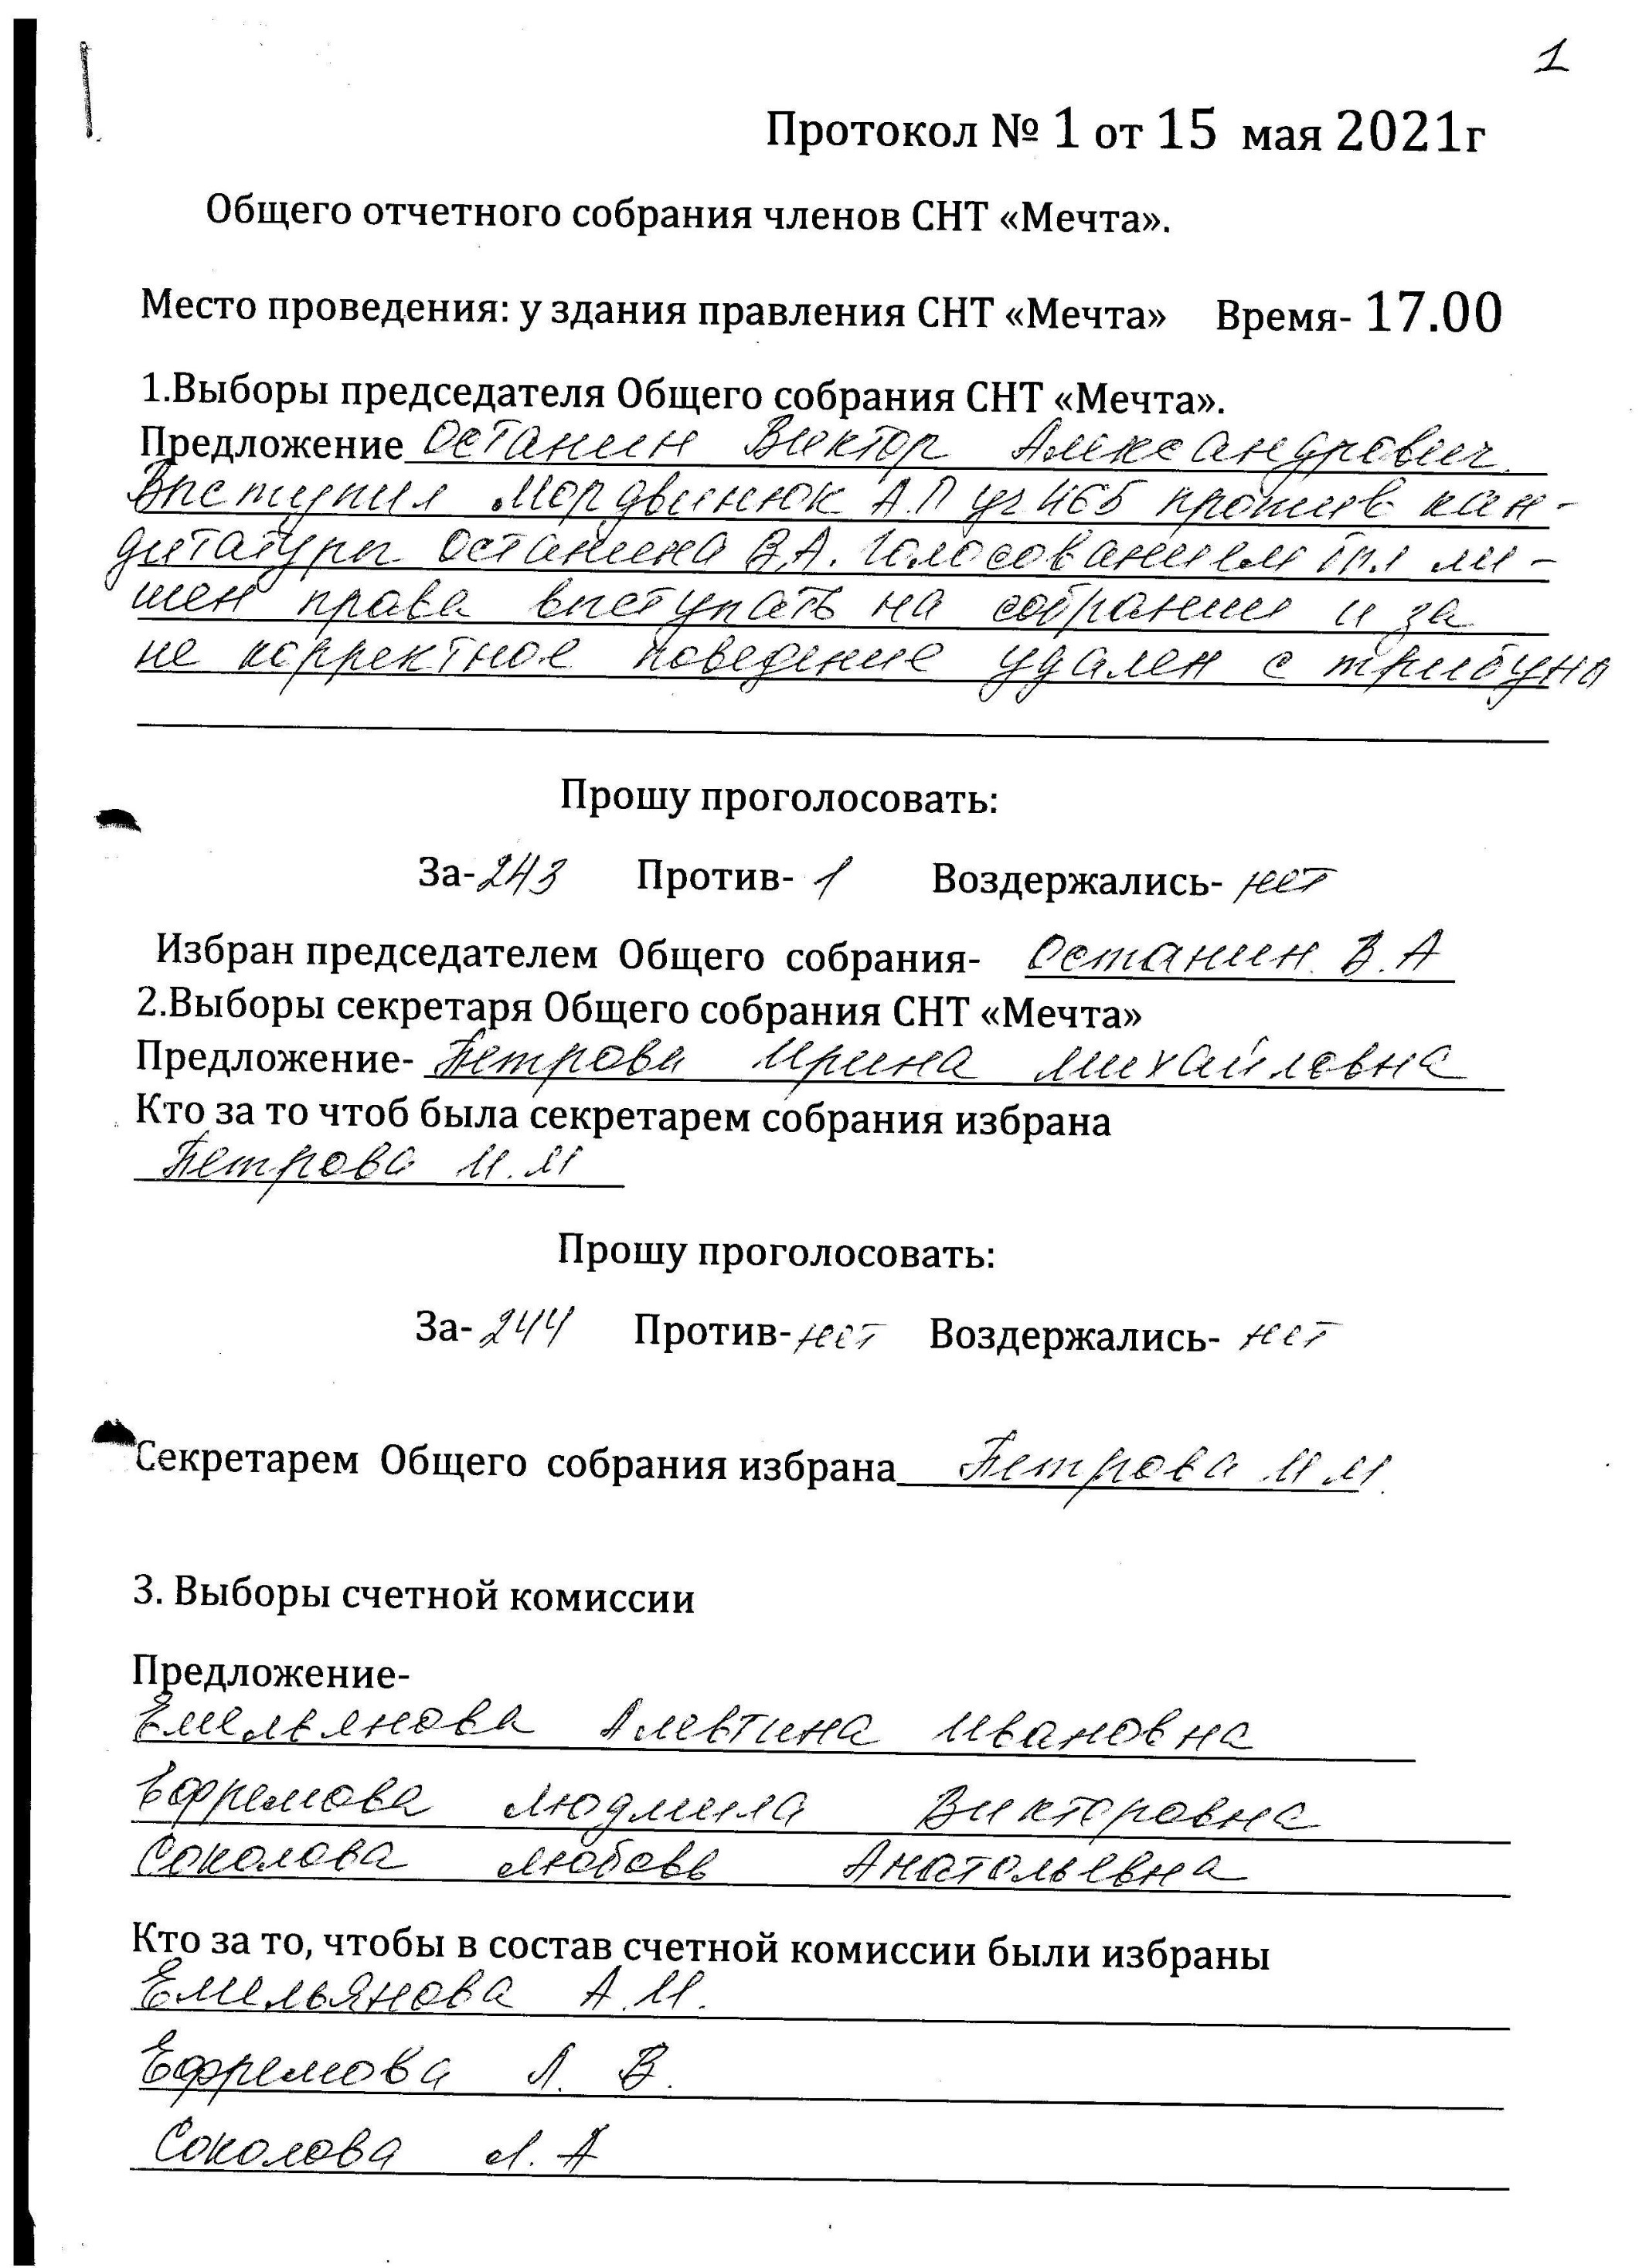 1
Протокол № 1 от 15 мая 2021г
Общего отчетного собрания членов СНТ «Мечта».
Место проведения: у здания правления СНТ «Мечта» Время- 17.00
1.Выборы председателя Общего собрания СНТ «Мечта».
Предложение Останин Виктор Александрович.
Выступил Мордвинюк А.П уч 465 против кан-
дитатуры Останина В.А. Голосованием был ли-
шен права выступать на собрании и за
не корректное поведение удален с трибуны
Прошу проголосовать:
За- 243 Против- 1 Воздержались- нет
Избран председателем Общего собрания- Останин В.А
2.Выборы секретаря Общего собрания СНТ «Мечта»
Предложение- Петрова Ирина Михайловна
Кто за то чтоб была секретарем собрания избрана
Петрова И.М
Прошу проголосовать:
За- 244 Против- нет Воздержались- нет
Секретарем Общего собрания избрана Петрова И М.
3. Выборы счетной комиссии
Предложение-
Емельянова Алевтина Ивановна
Ефремова Людмила Викторовна
Соколова Любовь Анатольевна
Кто за то, чтобы в состав счетной комиссии были избраны
Емельянова А.И.
Ефремова Л. В.
Соколова Л. А